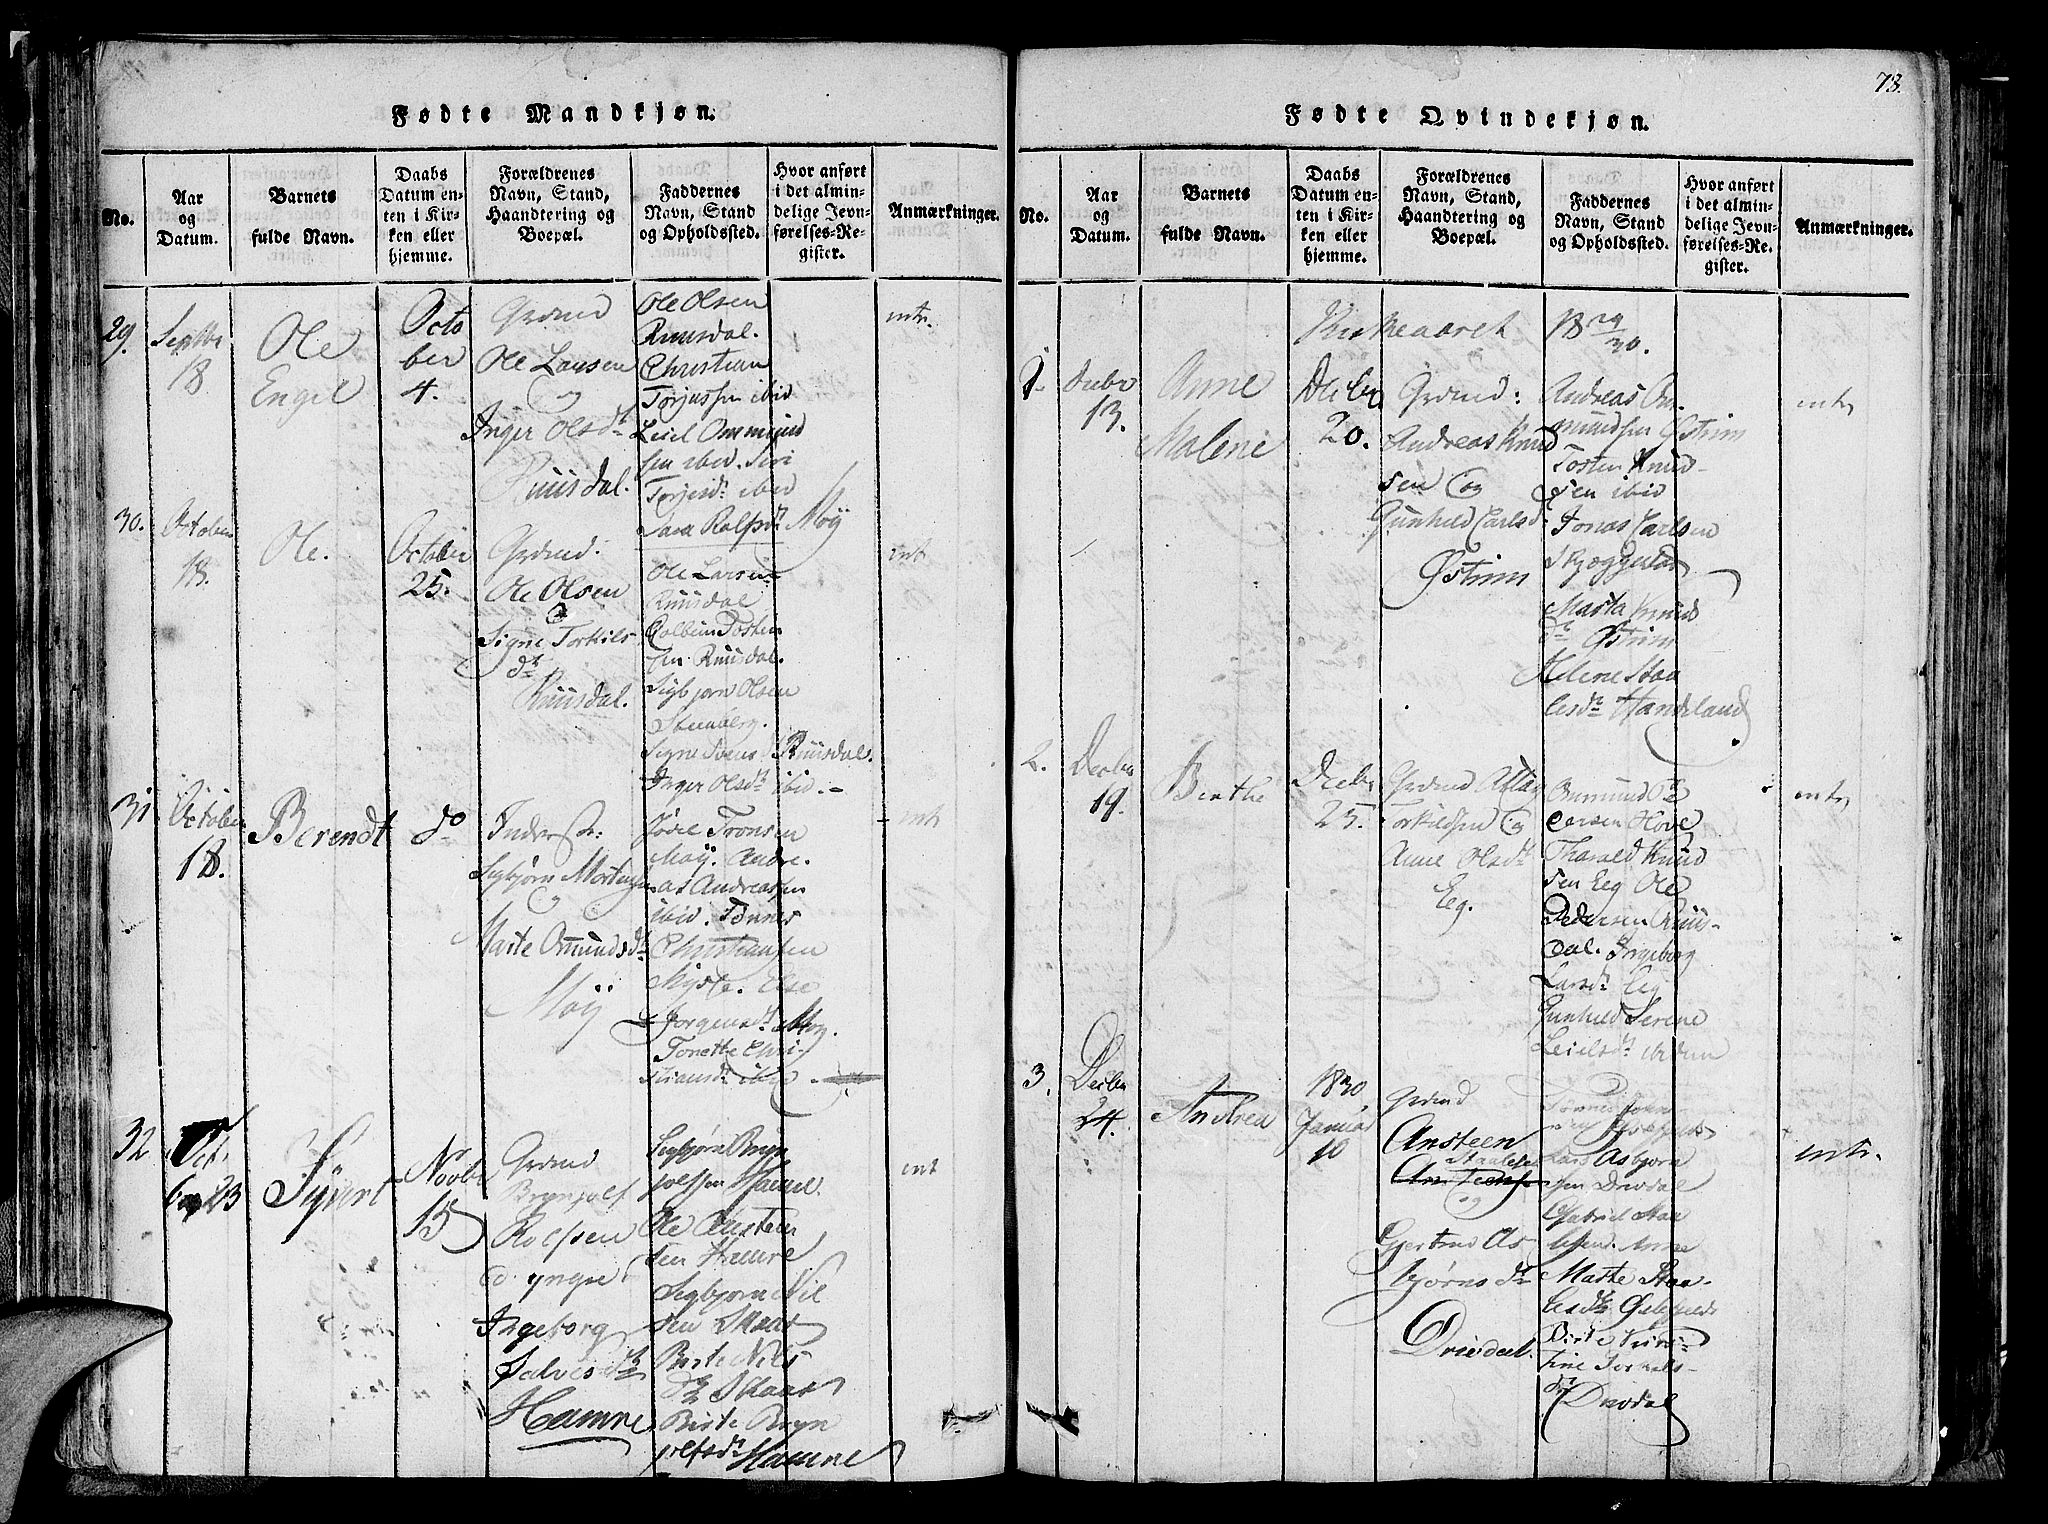 Fødte Mandkjøn.
No.
Aar
og
Datum.
Barnets
fulde Navn.
Daabs
Datum en-
ten i Kir-
ken eller
hjemme.
Forældrenes
Navn, Stand,
Haandtering og
Boepæl.
Faddernes
Navn, Stand
og Opholdssted.
Hvor anført
i det almin-
delige Jevn-
førelses-Re-
gister.
Anmærkninger.
29.
Septbr
18
Ole
Engel
Octo
ber
4.
Grdmd
Ole Larsen
og
Inger Olsdr
Ruusdal.
Ole Olsen
Ruusdal.
Christian
Torjussen ibid
Leiel Ommund
sen ibid. Siri
Torjesdr ibid
Sara Rolfsdr Moÿ
intr.
30.
October
18.
Ole.
October
25.
Grdmd.
Ole Olsen
og
Signe Torkils
dr
Ruusdal.
Ole Larsen
Ruusdal
Tosten
sen Ruusdal.
Sigbjørn Olsen
Steenberg.
Signe Svens dr Ruusdal.
Inger Olsdr ibid.
int
31
October
18.
Berendt
do
Inderstr:
Sigbjørn Mortensen
og
Marte Omunds dr
Moÿ
Jødel Tronsen
Moÿ. Andre-
as Andreassen
ibid. Tønnes
Christiansen
Mysse. Else
Jørgensdr Moy.
Tonette Chri-
stiansdr ibid
int
32
Oct.
ber 23
Sÿvert
Novbr
15
Grdmd
Brynjolf
Rolfsen
d. yngre
Ingeborg
Salves dr
Hamre
Sigbjørn Bryn
jolfsen Hamre.
Ole Ansten
sen Hamre
Sigbjørn Nil
sen Skaar
Birte Nils
dr Skaar
Birte Bryn
jolfsdr Hamre
int
73.
Fødte Qvindekjøn.
No.
Aar
og
Datum.
Barnets
fulde Navn.
Daabs
Datum en-
ten i Kir-
ken eller
hjemme.
Forældrenes
Navn, Stand,
Haandtering og
Boepæl.
Faddernes
Navn, Stand
og Opholdssted.
Hvor anført
i det almin-
delige Jevn-
førelses-Re-
gister.
Anmærkninger.
Kirkeaaret 18 29/30.
1.
Decbr
13.
Anne
Malene
Decbr
20.
Grdmd:
Andreas Knud
sen og
Gunhild Carlsdr
Østrim
Andreas Om-
mundsen Østrim
Tosten Knud-
sen ibid
Jonas Carlsen
Skjæggestad
Marta Knuds
dr Østrim
Helene Staa
lesdr Handeland
intr
2.
Decbr
19.
Birthe
Decbr
25.
Grdmd Aslag
Torkildsen og
Anne Olsdr
Eeg.
Ommund Pe
dersen Hove
Tharald Knud
sen Eeg Ole
Pedersen Ruus-
dal. Ingeborg
Larsdr Eeg
Gunhild Serene
Leielsdr ibidem
intr
3.
Decbr
24.
Andrea
1830
Januar
10
Grdmd
Ansteen
Staalesen
og
Gjertrud As
bjørns dr
Driedal.
Lars Asbjørn
sen Dredal
Gabriel Staa
lesen. Anne
Marte Staa-
lesdr
Birte Kirs-
tine Tørkels-
dr
Dredal
intr.